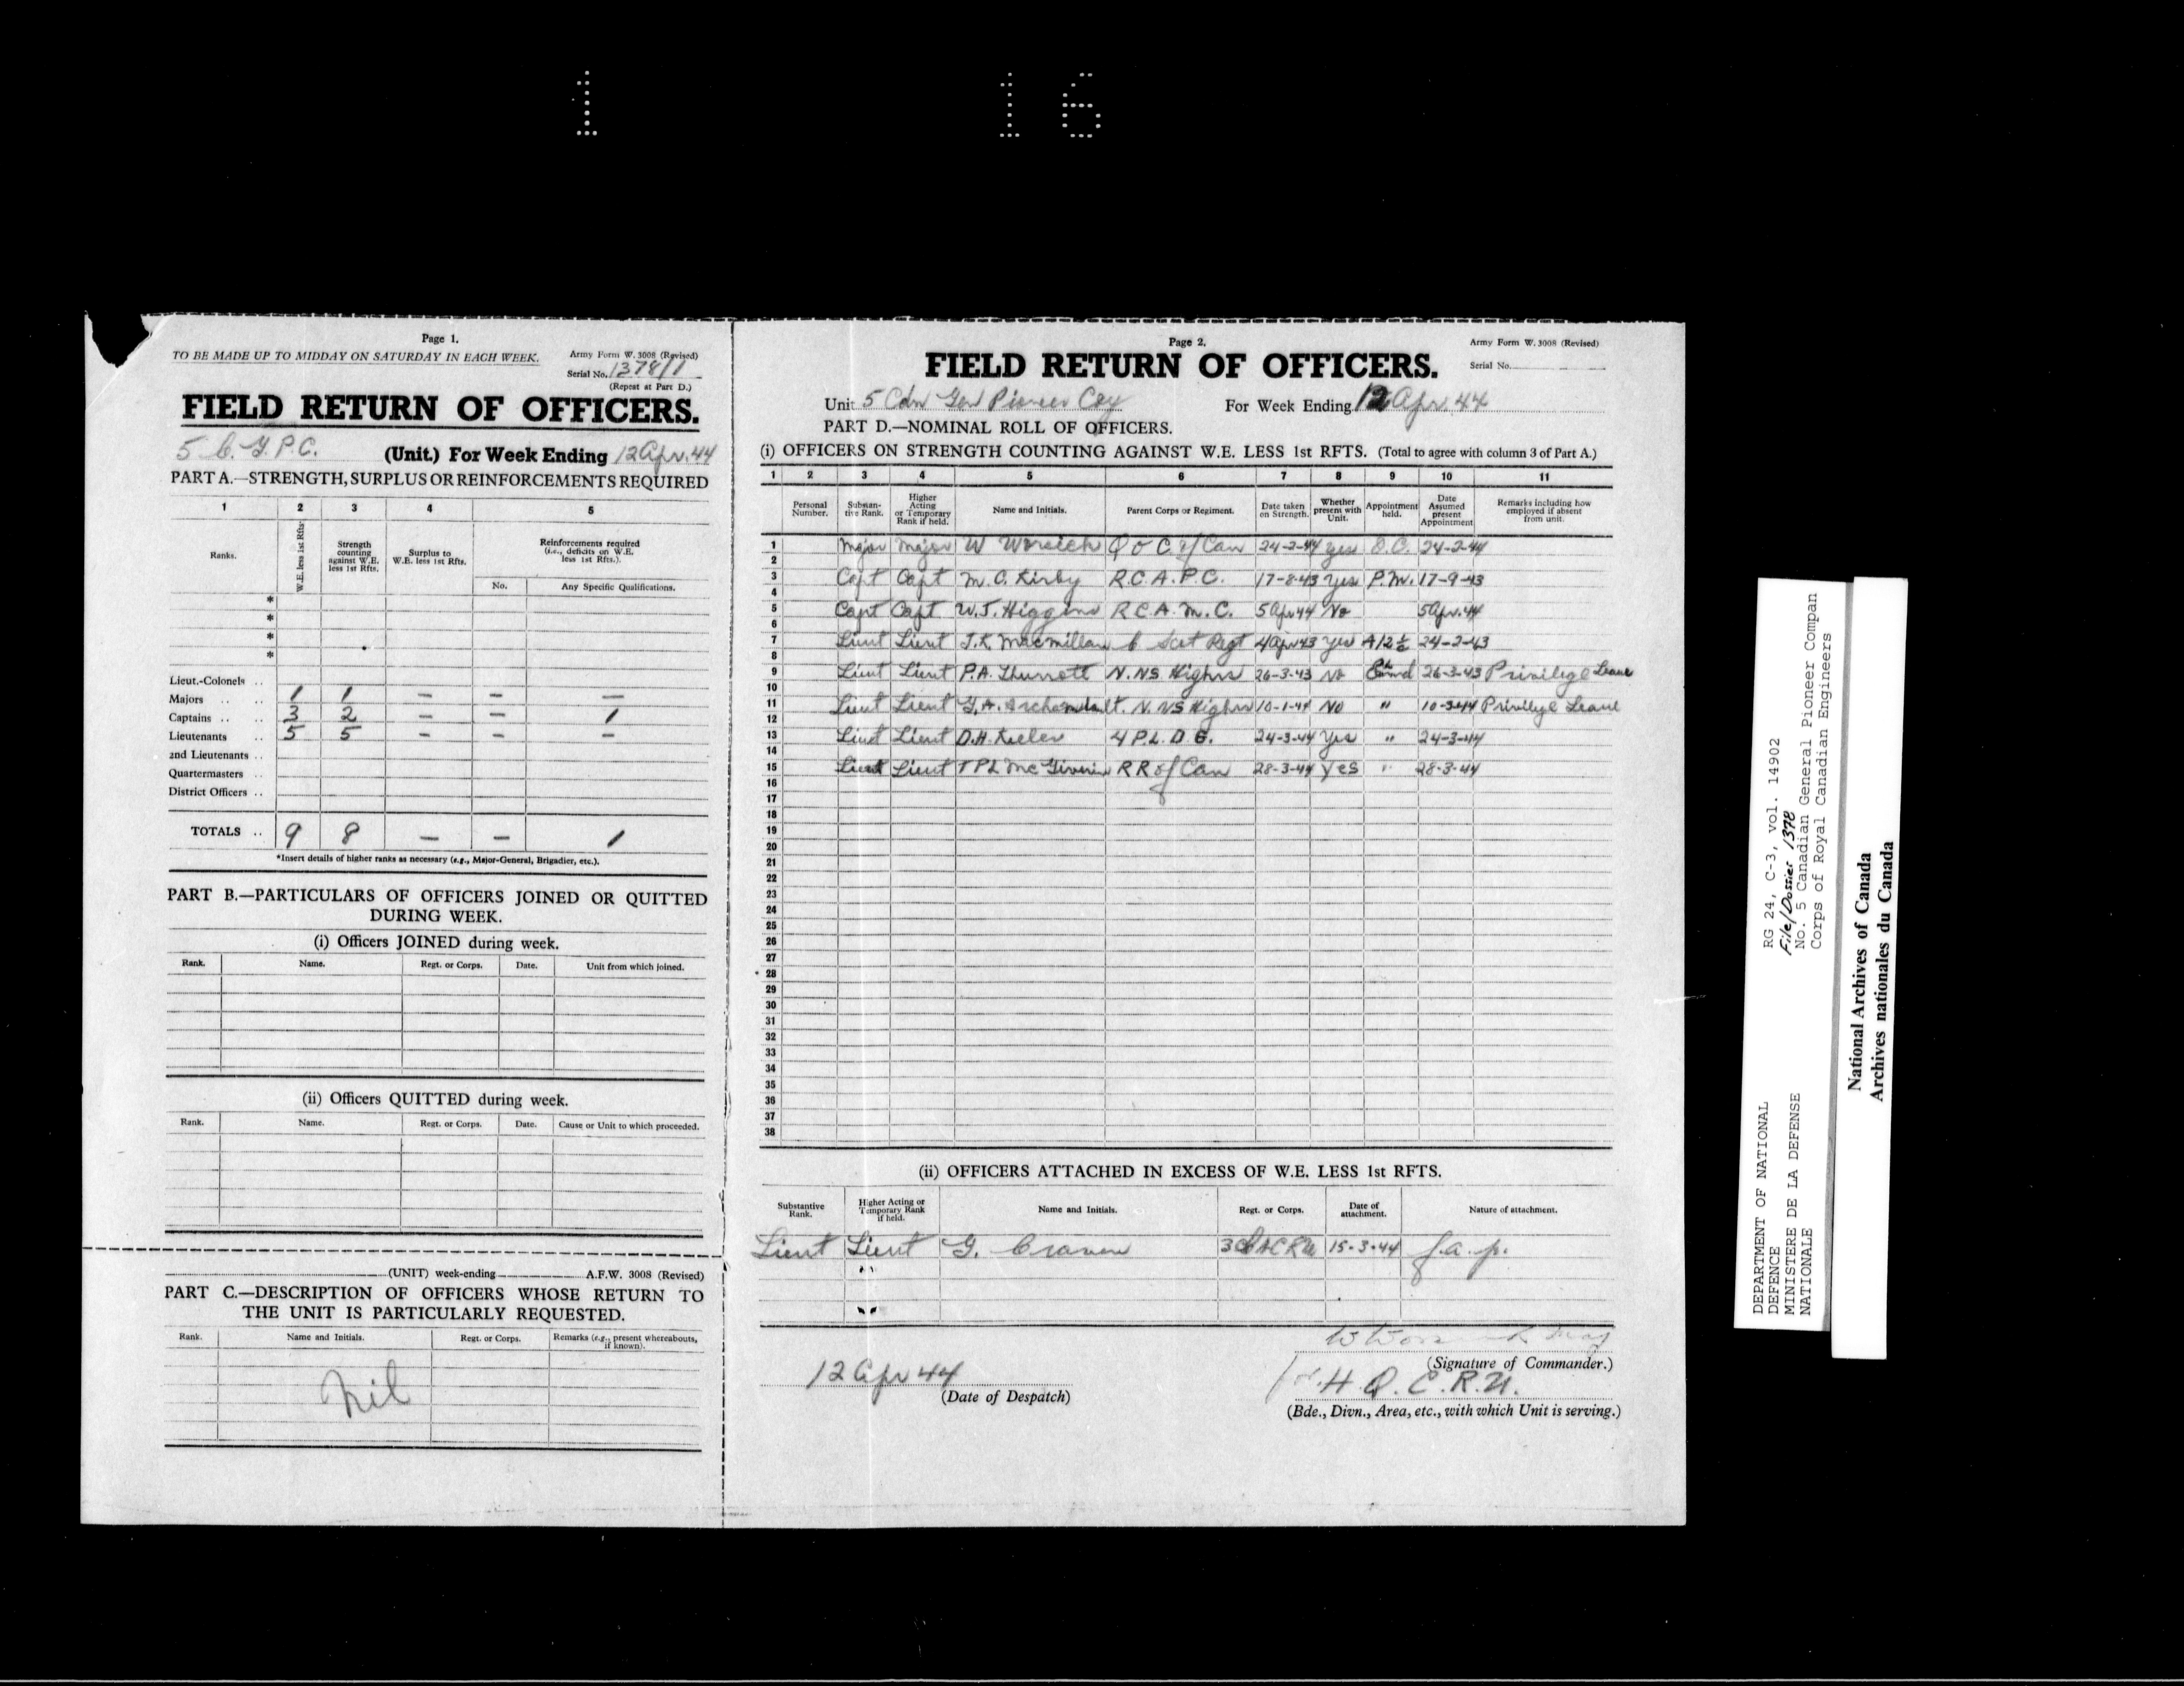 1 16
Page 1.
TO BE MADE UP TO MIDDAY ON SATURDAY IN EACH WEEK.
Army Form W. 3008 (Revised)
Serial No. 1378/1
(Repeat at Part D.)
FIELD RETURN OF OFFICERS.
5 C.G.P.C. (Unit.) For Week Ending 12 Apr. 44
PART A.—STRENGTH, SURPLUS OR REINFORCEMENTS REQUIRED
1 2 3 4 5
Ranks. W.E. less 1st Rfts. Strength counting against W.E. less 1st Rfts. Surplus to W.E. less 1st Rfts. Reinforcements required (i.e., deficits on W.E. less 1st Rfts.).
No. Any Specific Qualifications.
*
*
*
*
Lieut.-Colonels ..
Majors .. .. 1 1 – – –
Captains .. .. 3 2 – – 1
Lieutenants .. 5 5 – – –
2nd Lieutenants ..
Quartermasters ..
District Officers ..
TOTALS .. 9 8 – – 1
*Insert details of higher ranks as necessary (e.g., Major-General, Brigadier, etc.).
PART B.—PARTICULARS OF OFFICERS JOINED OR QUITTED
DURING WEEK.
(i) Officers JOINED during week.
Rank. Name. Regt. or Corps. Date. Unit from which joined.
(ii) Officers QUITTED during week.
Rank. Name. Regt. or Corps. Date. Cause or Unit to which proceeded.
(UNIT) week-ending A.F.W. 3008 (Revised)
PART C.—DESCRIPTION OF OFFICERS WHOSE RETURN TO
THE UNIT IS PARTICULARLY REQUESTED.
Rank. Name and Initials. Regt. or Corps. Remarks (e.g., present whereabouts, if known).
Nil
Page 2.
Army Form W. 3008 (Revised)
FIELD RETURN OF OFFICERS.
Serial No.
Unit 5 Cdn Gen Pioneer Coy For Week Ending 12 Apr. 44
PART D.—NOMINAL ROLL OF OFFICERS.
(i) OFFICERS ON STRENGTH COUNTING AGAINST W.E. LESS 1st RFTS. (Total to agree with column 3 of Part A.)
1 2 3 4 5 6 7 8 9 10 11
Personal Number. Substantive Rank. Higher Acting or Temporary Rank if held. Name and Initials. Parent Corps or Regiment. Date taken on Strength. Whether present with Unit. Appointment held. Date Assumed present Appointment Remarks including how employed if absent from unit.
1 Major Major W Q O C of Can 24-2-44 yes O.C. 24-2-44
2
3 Capt Capt M.C. Kirby R.C.A.P.C. 17-8-43 Yes P.M. 17-9-43
4
5 Capt Capt W.J. Higgins R.C.A.M.C. 5 Apr 44 No 5 Apr. 44
6
7 Lieut Lieut J.K. Macmillan C Scot Regt 4 Apr 43 Yes 24-2-43
8
9 Lieut Lieut P.A. Thurrott N.NS Highrs 26-3-43 No 26-3-43 Privilege Leave
10
11 Lieut Lieut G.A. Archambault. N.NS Highrs 10-1-44 No " 10-3-44 Privilege Leave
12
13 Lieut Lieut D.H. Keeler 4 P.L.D.G. 24-3-44 Yes " 24-3-44
14
15 Lieut Lieut TPL McGiverin R R of Can 28-3-44 Yes " 28-3-44
16
17
18
19
20
21
22
23
24
25
26
27
28
29
30
31
32
33
34
35
36
37
38
(ii) OFFICERS ATTACHED IN EXCESS OF W.E. LESS 1st RFTS.
Substantive Rank. Higher Acting or Temporary Rank if held. Name and Initials. Regt. or Corps. Date of attachment. Nature of attachment.
Lieut Lieut G. Craven 15-3-44 f.a.p.
(Signature of Commander.)
12 Apr 44
(Date of Despatch)
H.Q. C.R.U.
(Bde., Divn., Area, etc., with which Unit is serving.)
DEPARTMENT OF NATIONAL
DEFENCE
MINISTERE DE LA DEFENSE
NATIONALE
RG 24, C-3, vol. 14902
File/Dossier 1378
No. 5 Canadian General Pioneer Compan
Corps of Royal Canadian Engineers
National Archives of Canada
Archives nationales du Canada